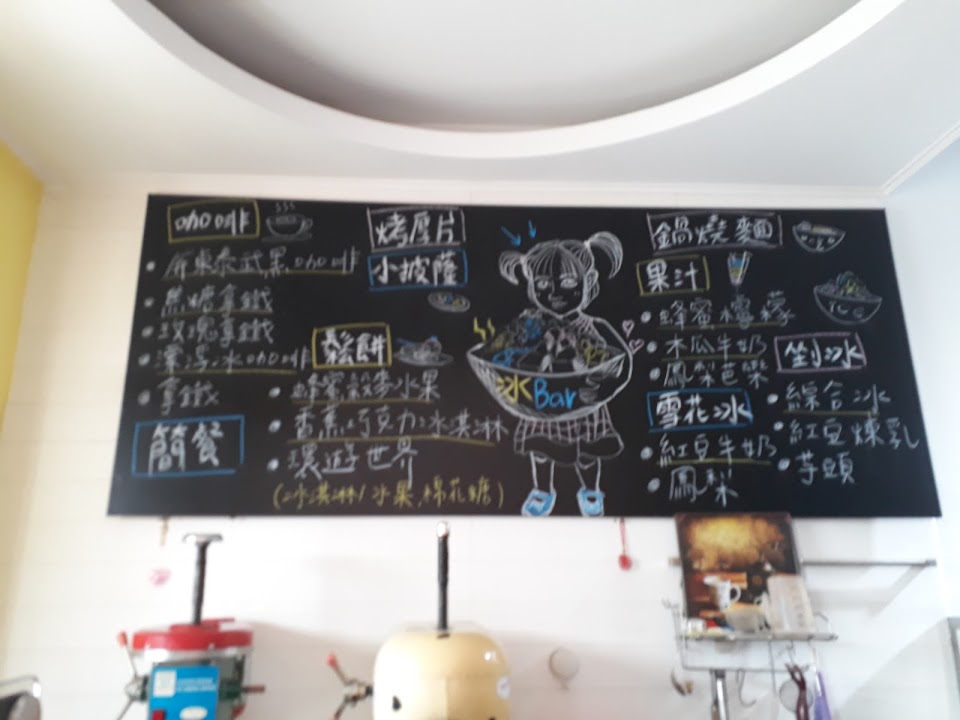 咖啡
屏東泰武黑咖啡
焦糖拿鐵
玫瑰拿鐵
漂浮冰咖啡
拿鐵
簡餐
烤厚片
小披薩
鬆餅
蜂蜜穀麥水果
香蕉巧克力冰淇淋
環遊世界
(冰淇淋/水果,棉花糖)
冰Bar
鍋燒麵
果汁
蜂蜜檸檬
木瓜牛奶
鳳梨芭樂
雪花冰
紅豆牛奶
鳳梨
剉冰
綜合冰
紅豆煉乳
芋頭